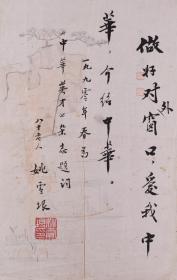 做好对外窗口，爱我中
华，介绍中华。
一九九零年春为
《中华英才》杂志题词
八十老人
姚雪垠